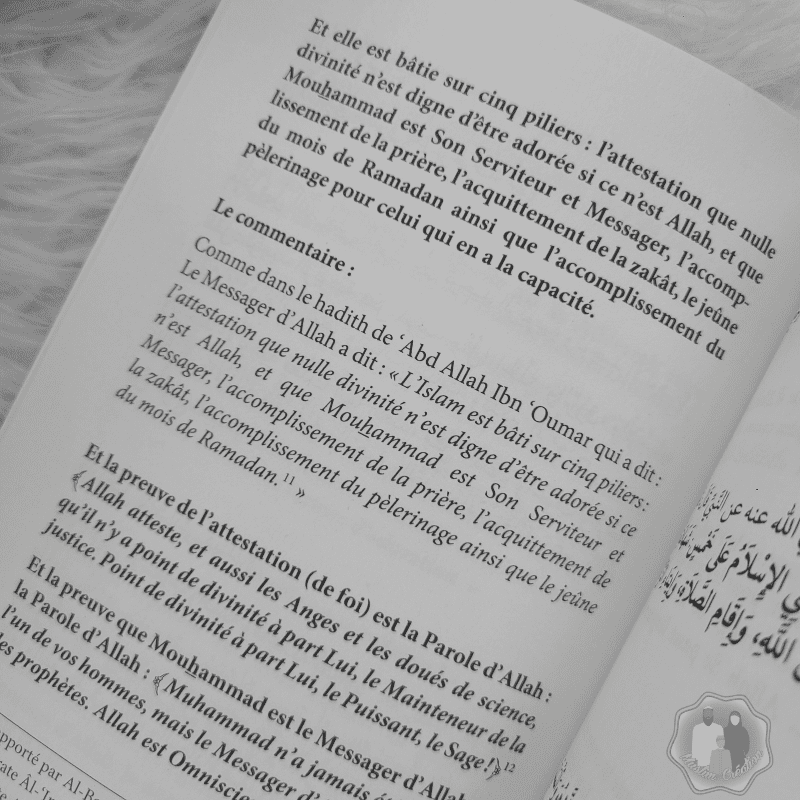 Et elle est bâtie sur cinq piliers : l'attestation que nulle
divinité n'est digne d'être adorée si ce n'est Allah, et que
Mouhammad est Son Serviteur et Messager, l'accomp-
lissement de la prière, l'acquittement de la zakât, le jeûne
du mois de Ramadan ainsi que l'accomplissement du
pèlerinage pour celui qui en a la capacité.
Le commentaire :
Comme dans le hadith de ‘Abd Allah Ibn ‘Oumar qui a dit :
Le Messager d'Allah a dit : « L'Islam est bâti sur cinq piliers :
l'attestation que nulle divinité n'est digne d'être adorée si ce
n'est Allah, et que Mouhammad est Son Serviteur et
Messager, l'accomplissement de la prière, l'acquittement de
la zakât, l'accomplissement du pèlerinage ainsi que le jeûne
du mois de Ramadan. 11 »
Et la preuve de l'attestation (de foi) est la Parole d'Allah :
﴾Allah atteste, et aussi les Anges et les doués de science,
qu'il n'y a point de divinité à part Lui, le Mainteneur de la
justice. Point de divinité à part Lui, le Puissant, le Sage !﴿ 12
Et la preuve que Mouhammad est le Messager d'Allah
la Parole d'Allah : ﴾Muhammad n'a jamais
l'un de vos hommes, mais le Messager d'
des prophètes. Allah est
pporté par
الله عنه عن
الإِسْلَامُ عَلَى خَمْسٍ
اللَّهِ، وَإِقَامِ الصَّلَاةِ،